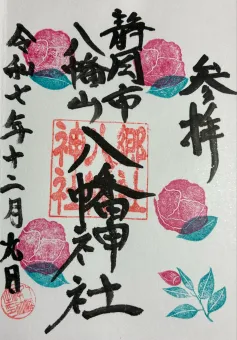 参拝
静岡市
八幡山
八幡神社
郷社
八幡
神社
令和七年十二月九日